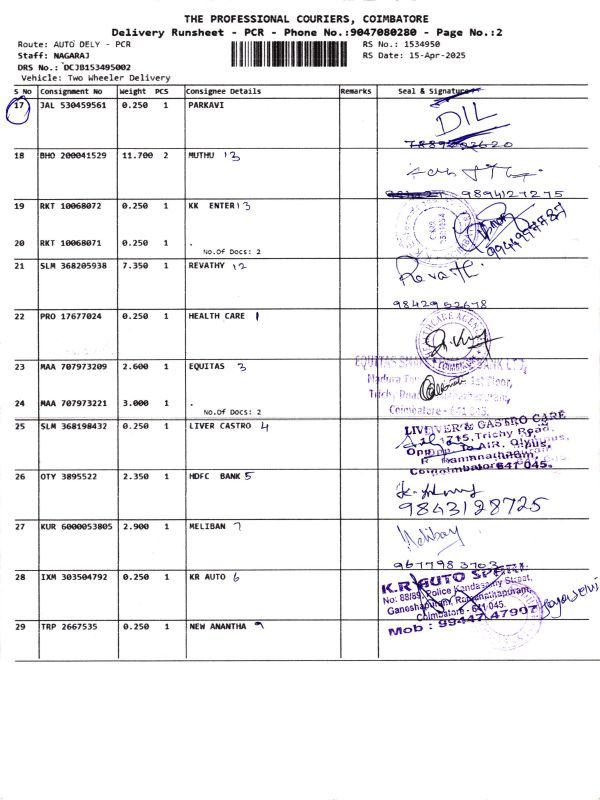 THE PROFESSIONAL COURIERS, COIMBATORE
Delivery Runsheet - PCR - Phone No.:9047080280 - Page No.:2
Route: AUTO DELY - PCR
RS No.: 1534950
Staff: NAGARAJ
RS Date: 15-Apr-2025
DRS No.: DCJB153495002
Vehicle: Two Wheeler Delivery
S No Consignment No Weight PCS Consignee Details Remarks Seal & Signature
17 JAL 530459561 0.250 1 PARKAVI DIL
18 BHO 200041529 11.700 2 MUTHU 13
9894127275
19 RKT 10068072 0.250 1 KK ENTER 13
20 RKT 10068071 0.250 1 .
No.Of Docs: 2
21 SLM 368205938 7.350 1 REVATHY 12 Revath.
9842952678
22 PRO 17677024 0.250 1 HEALTH CARE 1
23 MAA 707973209 2.600 1 EQUITAS 3
24 MAA 707973221 3.000 1 .
No.Of Docs: 2
Coimbatore - 641 045.
25 SLM 368198432 0.250 1 LIVER CASTRO 4
LIVER & GASTRO CARE
1215, Trichy Road,
641 045.
26 OTY 3895522 2.350 1 HDFC BANK 5
9843128725
27 KUR 6000053805 2.900 1 MELIBAN 7
9677983703
28 IXM 303504792 0.250 1 KR AUTO 6
K.R AUTO
No: 88/89, Police Kandasamy Street,
Ganeshapuram, Ramanathapuram,
Coimbatore - 641 045.
Mob : 99447 47997
29 TRP 2667535 0.250 1 NEW ANANTHA 9